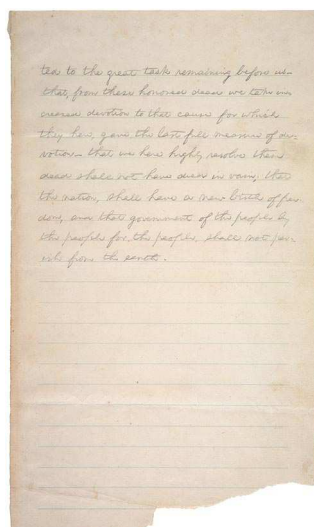 ted to the great task remaining before us—
that, from these honored dead we take in-
creased devotion to that cause for which
they here, gave the last full measure of de-
votion— that we here highly resolve these
dead shall not have died in vain; that
the nation, shall have a new birth of free-
dom, and that government of the people by
the people for the people, shall not per-
ish from the earth.